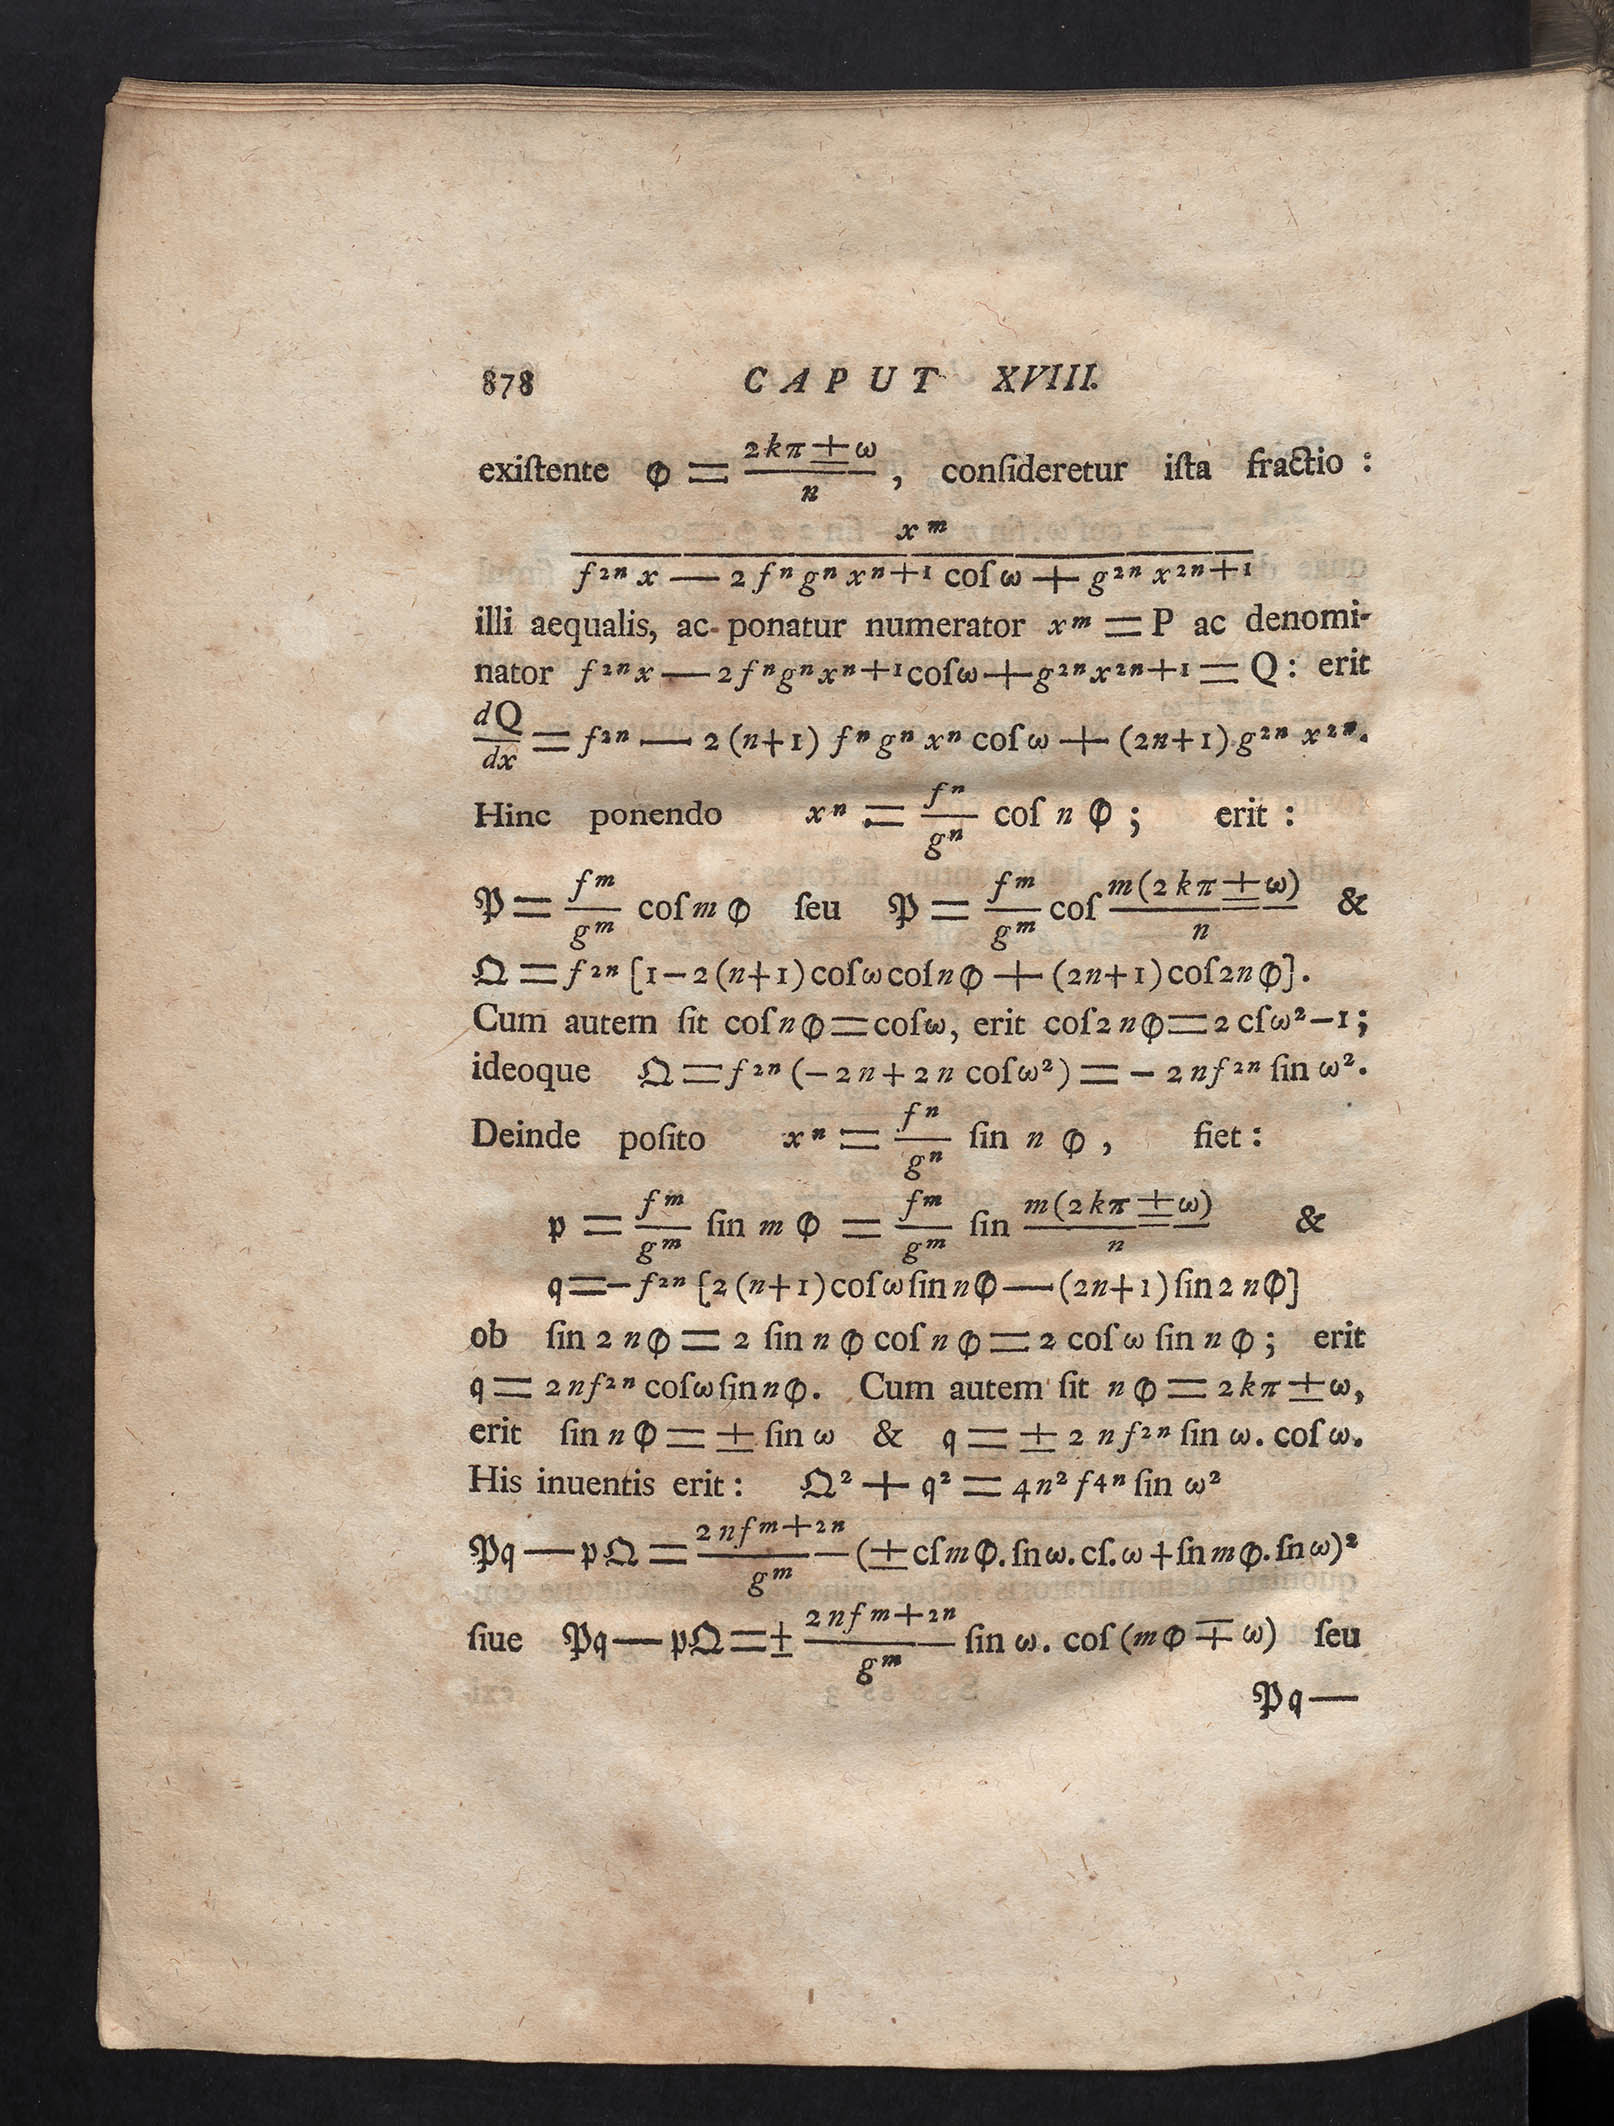 878 CAPUT XVIII.
exiſtente φ = \frac{2kπ ± ω}{n}, conſideretur iſta fractio :
\frac{x^m}{f^{2n} x — 2 f^n g^n x^{n+1} coſ ω + g^{2n} x^{2n+1}}
illi aequalis, ac ponatur numerator x^m = P ac denomi-
nator f^{2n} x — 2 f^n g^n x^{n+1} coſ ω + g^{2n} x^{2n+1} = Q : erit
\frac{dQ}{dx} = f^{2n} — 2 (n+1) f^n g^n x^n coſ ω + (2n+1) g^{2n} x^{2n}.
Hinc ponendo x^n = \frac{f^n}{g^n} coſ n φ ; erit :
𝔓 = \frac{f^m}{g^m} coſ m φ ſeu 𝔓 = \frac{f^m}{g^m} coſ \frac{m(2kπ ± ω)}{n} &
𝔔 = f^{2n} [1 − 2 (n+1) coſ ω coſ n φ + (2n+1) coſ 2n φ].
Cum autem ſit coſ n φ = coſ ω, erit coſ 2 n φ = 2 cſ ω² − 1 ;
ideoque 𝔔 = f^{2n} (− 2 n + 2 n coſ ω²) = − 2 n f^{2n} ſin ω².
Deinde poſito x^n = \frac{f^n}{g^n} ſin n φ , fiet :
𝔭 = \frac{f^m}{g^m} ſin m φ = \frac{f^m}{g^m} ſin \frac{m(2kπ ± ω)}{n} &
𝔮 = − f^{2n} [2 (n+1) coſ ω ſin n φ — (2n+1) ſin 2 n φ]
ob ſin 2 n φ = 2 ſin n φ coſ n φ = 2 coſ ω ſin n φ ; erit
𝔮 = 2 n f^{2n} coſ ω ſin n φ. Cum autem ſit n φ = 2 k π ± ω,
erit ſin n φ = ± ſin ω & 𝔮 = ± 2 n f^{2n} ſin ω. coſ ω.
His inuentis erit : 𝔔² + 𝔮² = 4 n² f^{4n} ſin ω²
𝔓𝔮 — 𝔭𝔔 = \frac{2 n f^{m+2n}}{g^m} (± cſ m φ. ſn ω. cſ. ω + ſn m φ. ſn ω)²
ſiue 𝔓𝔮 — 𝔭𝔔 = ± \frac{2 n f^{m+2n}}{g^m} ſin ω. coſ (m φ ∓ ω) ſeu
𝔓𝔮 —